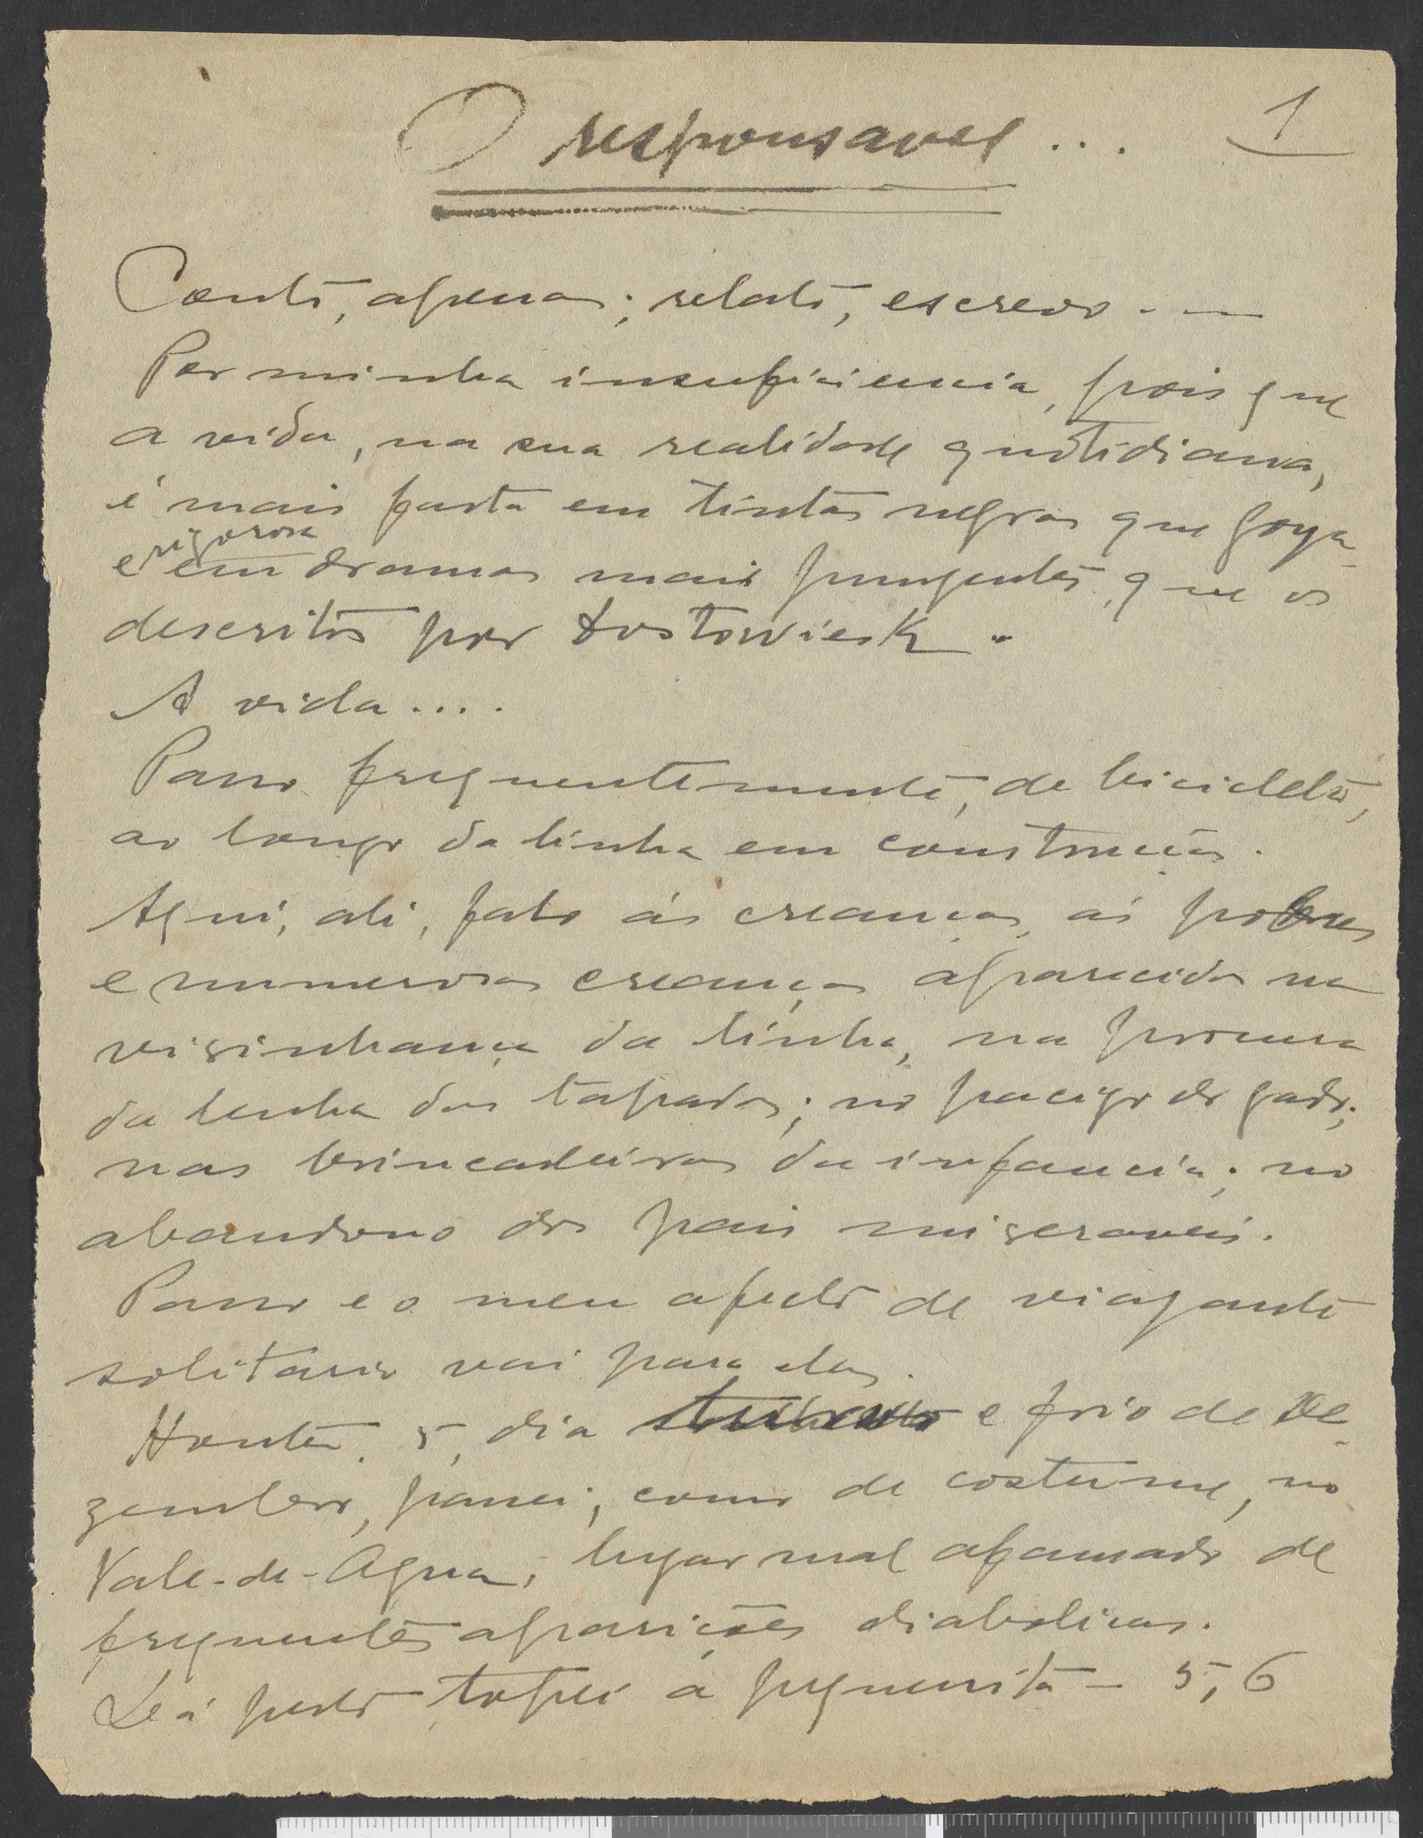 O responsavel...
1
Conto, apenas; relato, escrevo. —
Por minha insuficiencia, pois que
a vida, na sua realidade quotidiana,
é mais farta em tintas negras que Goya
rigorosa
e em dramas mais pungentes que os
descritos por Dostowiesk.
A vida....
Passo frequentemente, de bicicleta,
ao longo da linha em construção.
Aqui, ali, falo ás creanças, ás pobres
e numerosas creanças aparecidas na
visinhança da linha, na procura
da lenha dos tapados; no pacigo do gado;
nas brincadeiras da infancia; no
abandono dos pais miseraveis.
Passo e o meu afecto de viajante
solitario vai para elas.
Hontem, 5, dia e frio de De-
zembro, passei, como de costume, no
Vale-de-Agua, lugar mal afamado de
frequentes aparições diabolicas.
Lá perto topei a pequenita — 5, 6